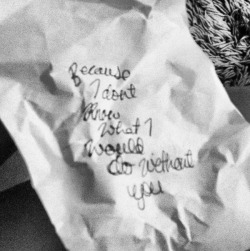 Because
I dont
know
what I
would
do without
you